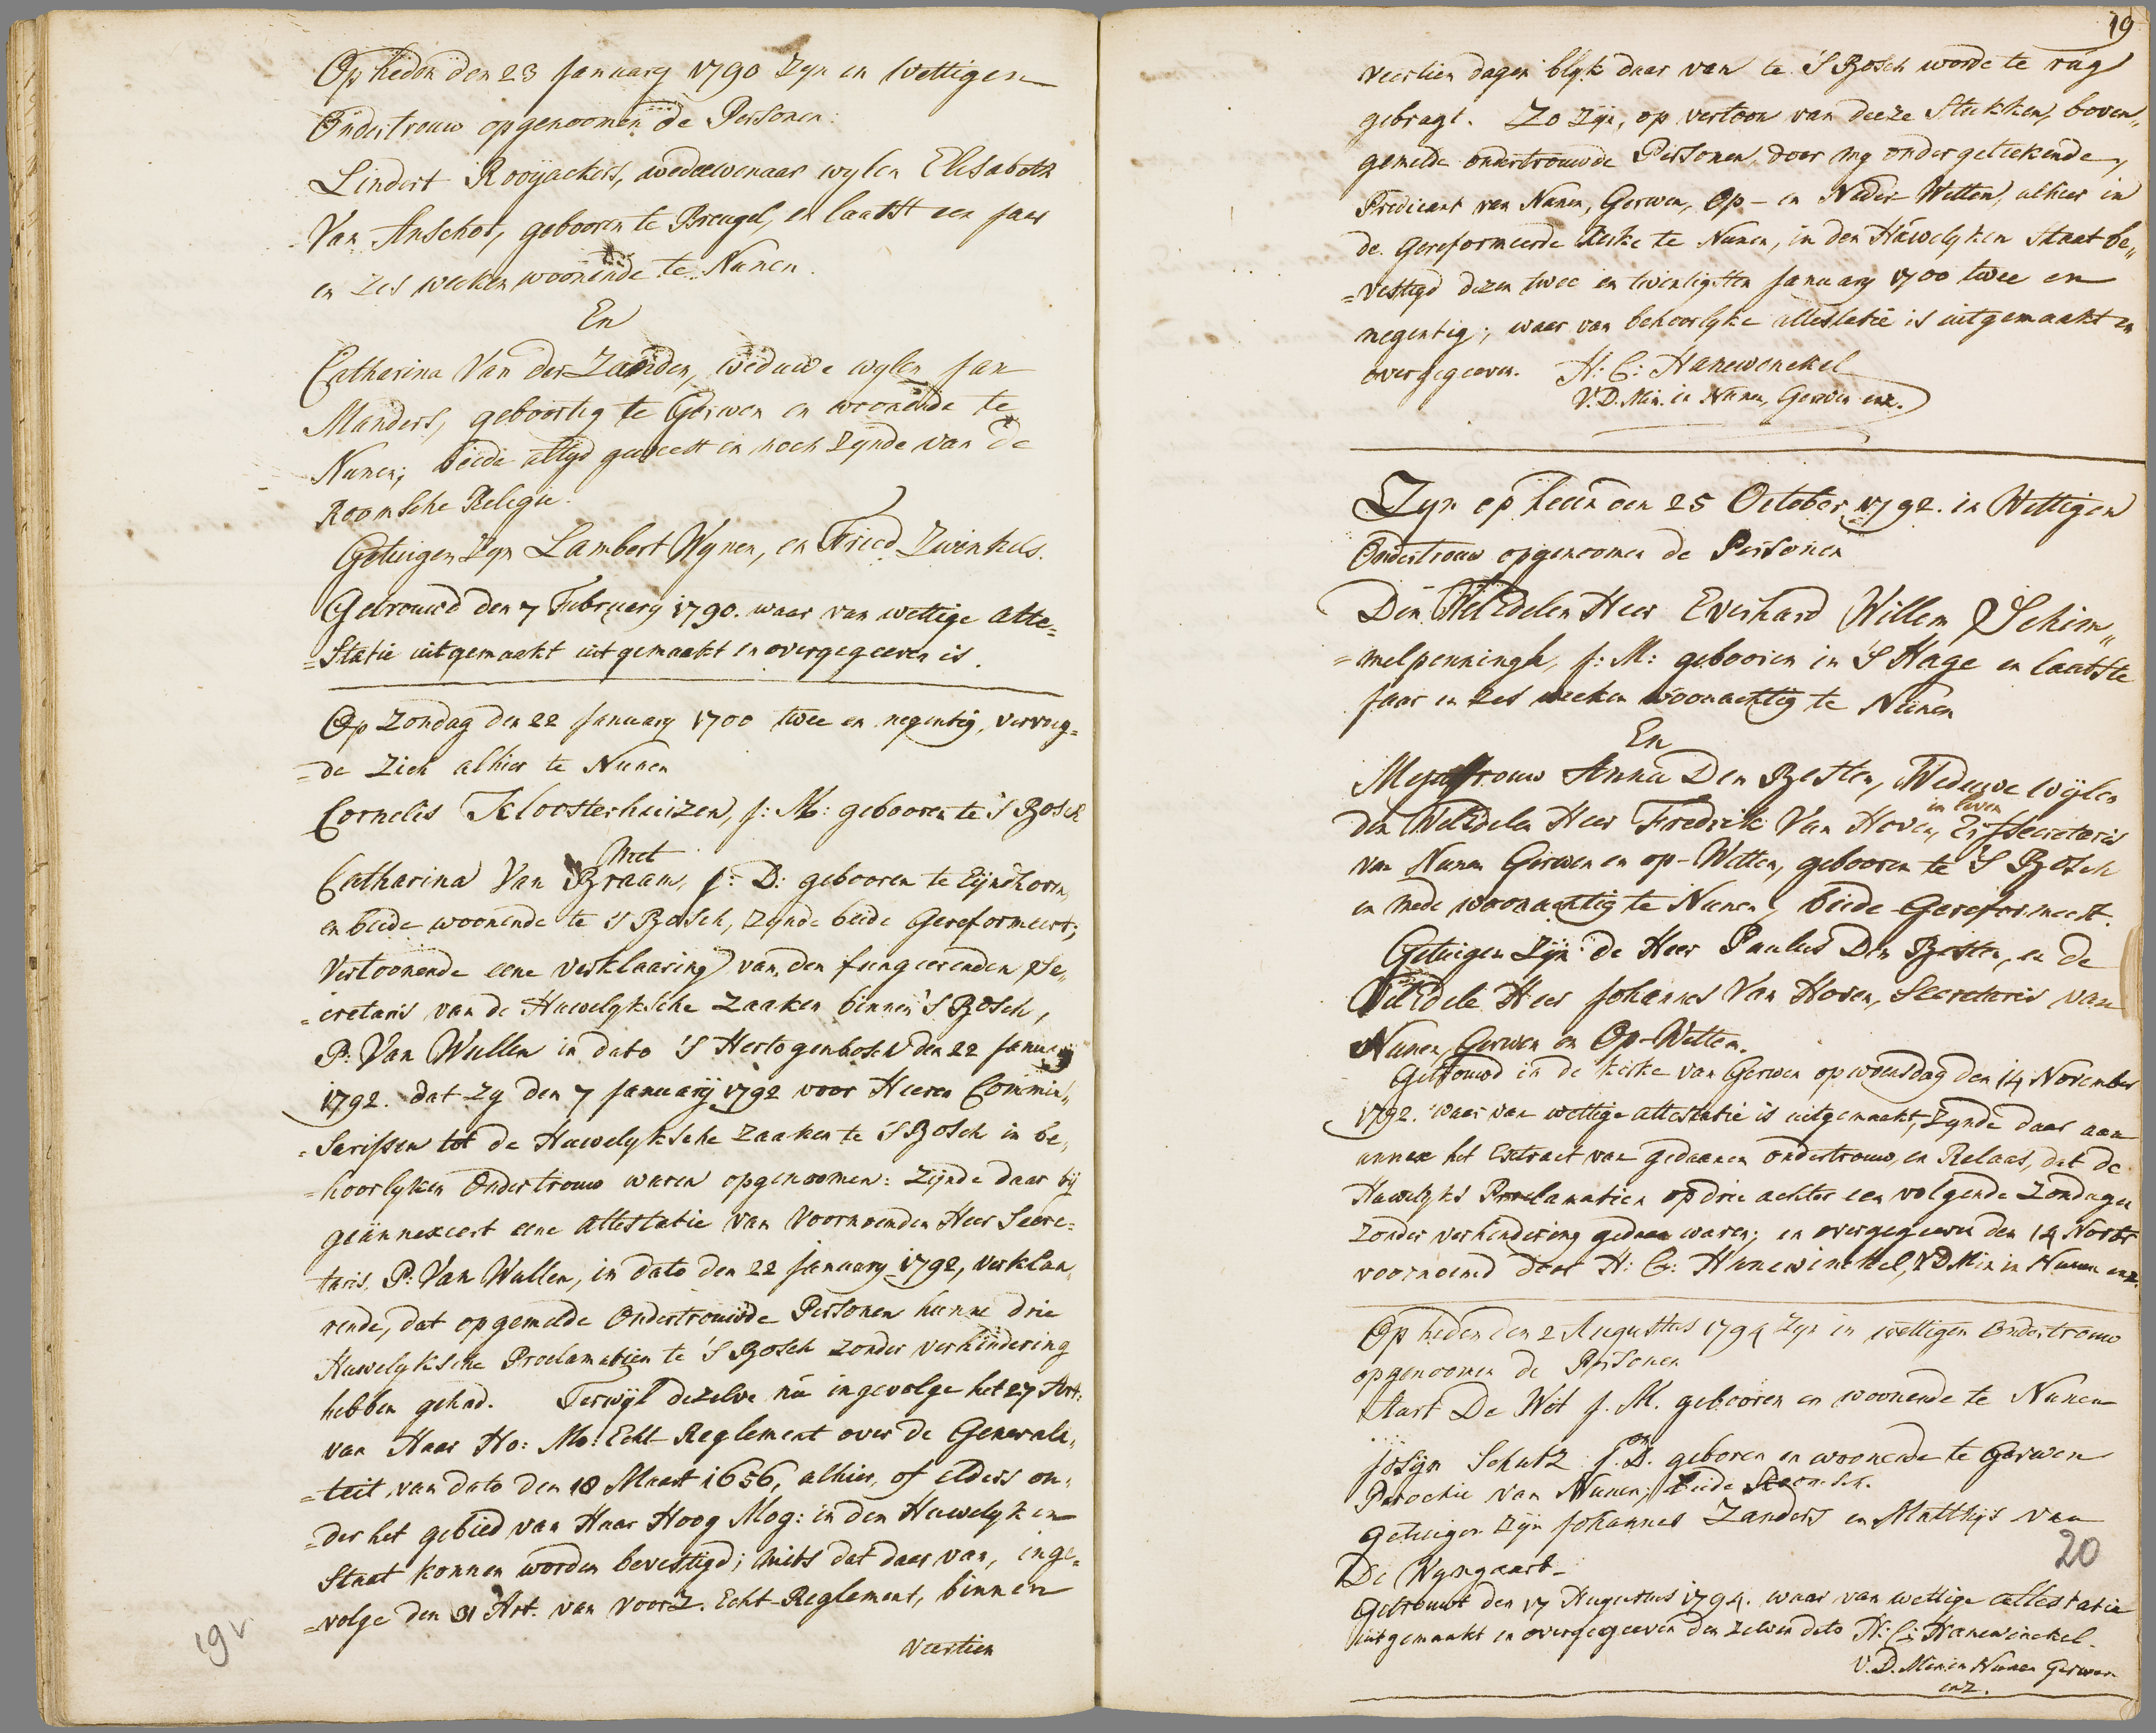 Op heden den 23 January 1790 Zyn in Wettigen
Ondertrouw opgenoomen de Personen:
Lindert Rooyackers, weduwenaar wylen Elisabeth
Van Anschot, gebooren te Breugel, en laatst een jaar
en zes weeken woonende te Nunen.
En
Catharina Van der Zanden, weduwe wylen Jan
Manders, geboortig te Gerwen en woonende te
Nunen; beide altyd geweest en noch zynde van de
Roomsche Religie.
Getuigen zyn Lambert Wynen, en Fried Zwinkels.
Getrouwd den 7 February 1790. waar van wettige atte=
=statie uitgemaakt uitgemaakt en overgegeeven is.
Op Zondag den 22 January 1700 twee en negentig, vervoeg=
=de Zich alhier te Nunen
Cornelis Kloosterhuizen, J: M: gebooren te 'S Bosch
Met
Catharina Van Braam, J: D: gebooren te Eyndhoven,
en beide woonende te 'S Bosch, zynde beide Gereformeert;
Vertoonende eene verklaaring van den fungeerenden Se„
=cretaris van de Huwelyksche Zaaken binnen 'S Bosch,
P: Van Wullen in dato 'S Hertogenbosch den 22 January
1792. dat zy den 7 January 1792 voor Heeren Commis„
=sarissen tot de Huwelyksche zaaken te 'S Bosch in be„
=hoorlyken Ondertrouw waren opgenoomen: zynde daar by
geännexeert eene attestatie van Voornoemden Heer Secre=
taris, P: Van Wullen, in dato den 22 January 1792, verklaa„
rende, dat opgemelde Ondertrouwde Personen hunne drie
Huwelyksche Proclamatien te 'S Bosch zonder verhindering
hebben gehad. Terwyl dezelve nu ingevolge het 27 Art:
van Haar Ho: Mo: Echt-Reglement over de Generali„
=teit van dato den 18 Maart 1656, alhier, of elders on„
=der het gebied van Haar Hoog Mog: in den Huwelyken
Staat konnen worden bevestigd; mits dat daar van, inge=
=volge den 31 Art. van voorz. Echt-Reglement, binnen
veertien
19v
19
veertien dagen blyk daar van te 'S Bosch worde te rug
gebragt. Zo zyn, op vertoon van deeze Stukken, boven„
gemelde ondertrouwde Personen, door my ondergeteekende,
Predicant van Nunen, Gerwen, Op- en Neder-Wetten, alhier in
de Gereformeerde kerke te Nunen, in den Huwelyken Staat be„
=vestigd dezen twee en twintigsten January 1700 twee en
negentig; waar van behoorlyke attestatie is uitgemaakt en
overgegeeven. H: C: Hanewenckel
V. D. Min. in Nunen, Gerwen enz.
Zyn op heden den 25 October 1792. in Wettigen
Ondertrouw opgenoomen de Personen
Den WelEdelen Heer Everhard Willem Schim„
=melpenningh, J: M: gebooren in 'S Hage en laatste
Jaar en zes weeken woonachtig te Nunen
En
Mejuffrouw Anna Den Besten, Weduwe wylen
in leven
den WelEdelen Heer Fredrik Van Hoven, Secretaris
van Nunen Gerwen en op-Wetten, gebooren te 'S Bosch
en mede woonachtig te Nunen, beide Gereformeert.
Getuigen Zyn de Heer Paulus Den Besten, en de
WelEdele Heer Johannes Van Hoven, Secretaris van
Nunen, Gerwen en Op-Wetten.
Getrouwd in de kerke van Gerwen op woensdag den 14 November
1792. waar van wettige attestatie is uitgemaakt, zynde daar aan
annex het Extract van gedaanen ondertrouw, en Relaas, dat de
Huwelyks Proclamatien op drie achter een volgende Zondagen
zonder verhindering gedaan waren; en overgegeeven den 14 Novbr
voornoemd door H: C: Hanewinckel, V D Min in Nunen enz.
Op heden den 2 Augustus 1794 Zyn in wettigen Ondertrouw
opgenoomen de Personen
Aart De Wit J. M. gebooren en woonende te Nunen
en
Josyn Schutz J. D. geboren en woonende te Gerwen
Parochie van Nunen; beide Roomsch.
getuigen zyn Johannes Zanders en Matthys van
De Wyngaart.
20
Getrouwt den 17 Augustus 1794. waar van wettige attestatie
uitgemaakt en overgegeeven den zelven dato H: C: Hanewinckel.
V. D. Min in Nunen Gerwen
enz.